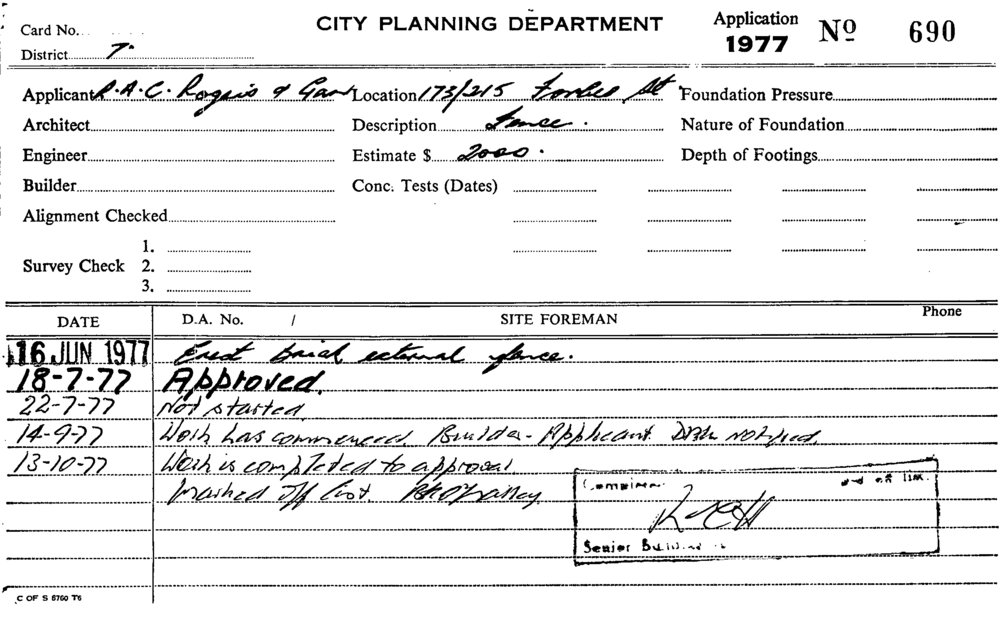 CITY PLANNING DEPARTMENT
Card No.
Application
1977
Nº 690
District T.
Applicant R.A.C. Rogers & Location 173/215 Forbes St Foundation Pressure
Architect Description Fence. Nature of Foundation
Engineer Estimate $ 2000. Depth of Footings
Builder Conc. Tests (Dates)
Alignment Checked
1.
Survey Check 2.
3.
DATE D.A. No. / SITE FOREMAN Phone
16 JUN 1977 Erect brick external fence.
18-7-77 Approved.
22-7-77 Not started
14-9-77 Work has commenced. Builder - Applicant. notified.
13-10-77 Work is completed to approval
Marked off list.
Senior
C OF S 6760 T6